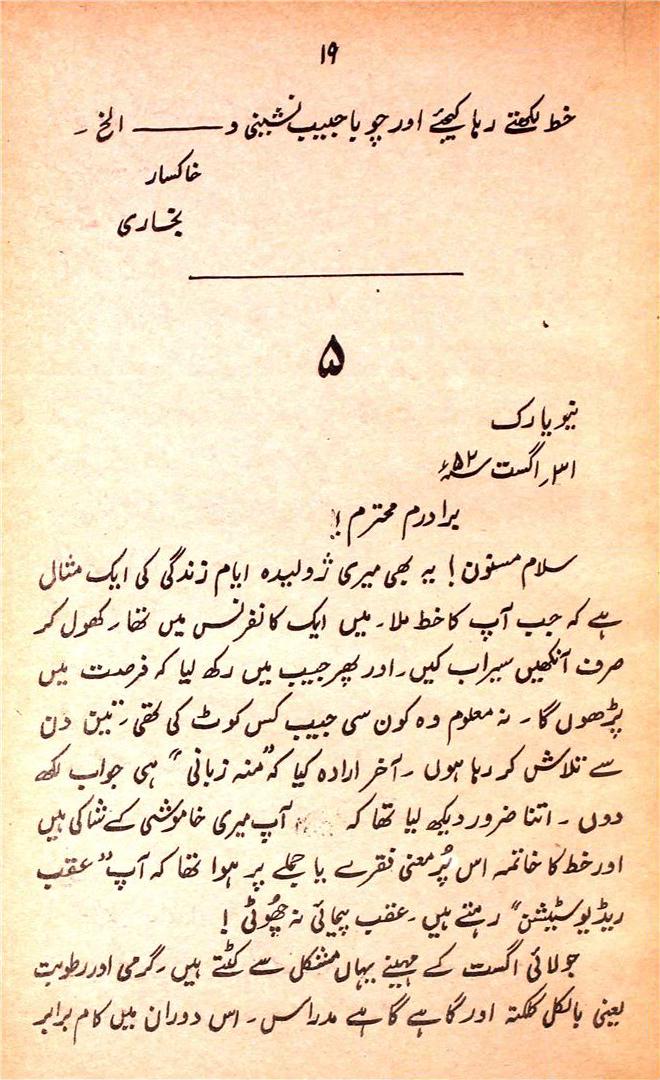 ۱۹
خط لکھتے رہا کیجئے اور چو با حبیب نشینی و ــــــ الخ ۔
خاکسار
بخاری
۵
نیویارک
۳۱؍اگست ۵۲ء
برادرم محترم !
سلام مسنون ! یہ بھی میری ژولیدہ ایام زندگی کی ایک مثال
ہے کہ جب آپ کا خط ملا۔ میں ایک کانفرنس میں تھا۔ کھول کر
صرف آنکھیں سیراب کیں۔ اور پھر جیب میں رکھ لیا کہ فرصت میں
پڑھوں گا۔ نہ معلوم وہ کون سی جیب کس کوٹ کی تھی۔ تین دن
سے تلاش کر رہا ہوں ۔ آخر ارادہ کیا کہ "منہ زبانی" ہی جواب لکھ
دوں ۔ اتنا ضرور دیکھ لیا تھا کہ آپ میری خاموشی کے شاکی ہیں
اور خط کا خاتمہ اس پُرمعنی فقرے یا جملے پر ہوا تھا کہ آپ "عقب
ریڈیو سٹیشن" رہتے ہیں۔ عقب پیمائی نہ چھُوٹی !
جولائی اگست کے مہینے یہاں مشکل سے کٹتے ہیں۔ گرمی اور رطوبت
یعنی بالکل کلکتہ اور گاہے گاہے مدراس۔ اس دوران میں کام برابر